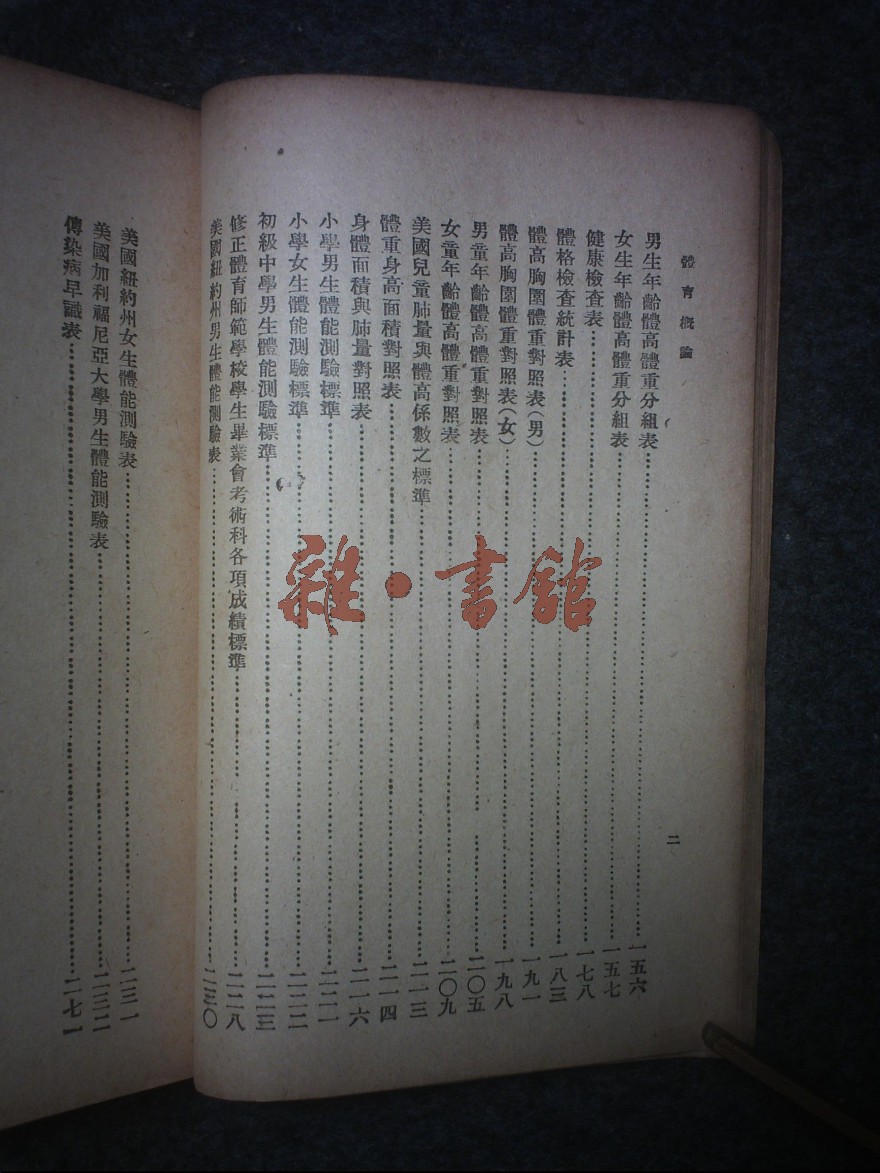 體育概論
二
男生年齡體高體重分組表……一五六
女生年齡體高體重分組表……一五七
健康檢查表……一七八
體格檢查統計表……一八三
體高胸圍體重對照表(男)……一九一
體高胸圍體重對照表(女)……一九八
男童年齡體高體重對照表……二〇五
女童年齡體高體重對照表……二〇九
美國兒童肺量與體高係數之標準……二一三
體重身高面積對照表……二一四
身體面積與肺量對照表……二一六
小學男生體能測驗標準……二二一
小學女生體能測驗標準……二二二
初級中學男生體能測驗標準……二二三
修正體育師範學校學生畢業會考術科各項成績標準……二二八
美國紐約州男生體能測驗表……二三〇
美國紐約州女生體能測驗表……二三一
美國加利福尼亞大學男生體能測驗表……二三二
傳染病早識表……二七一
雜·書館